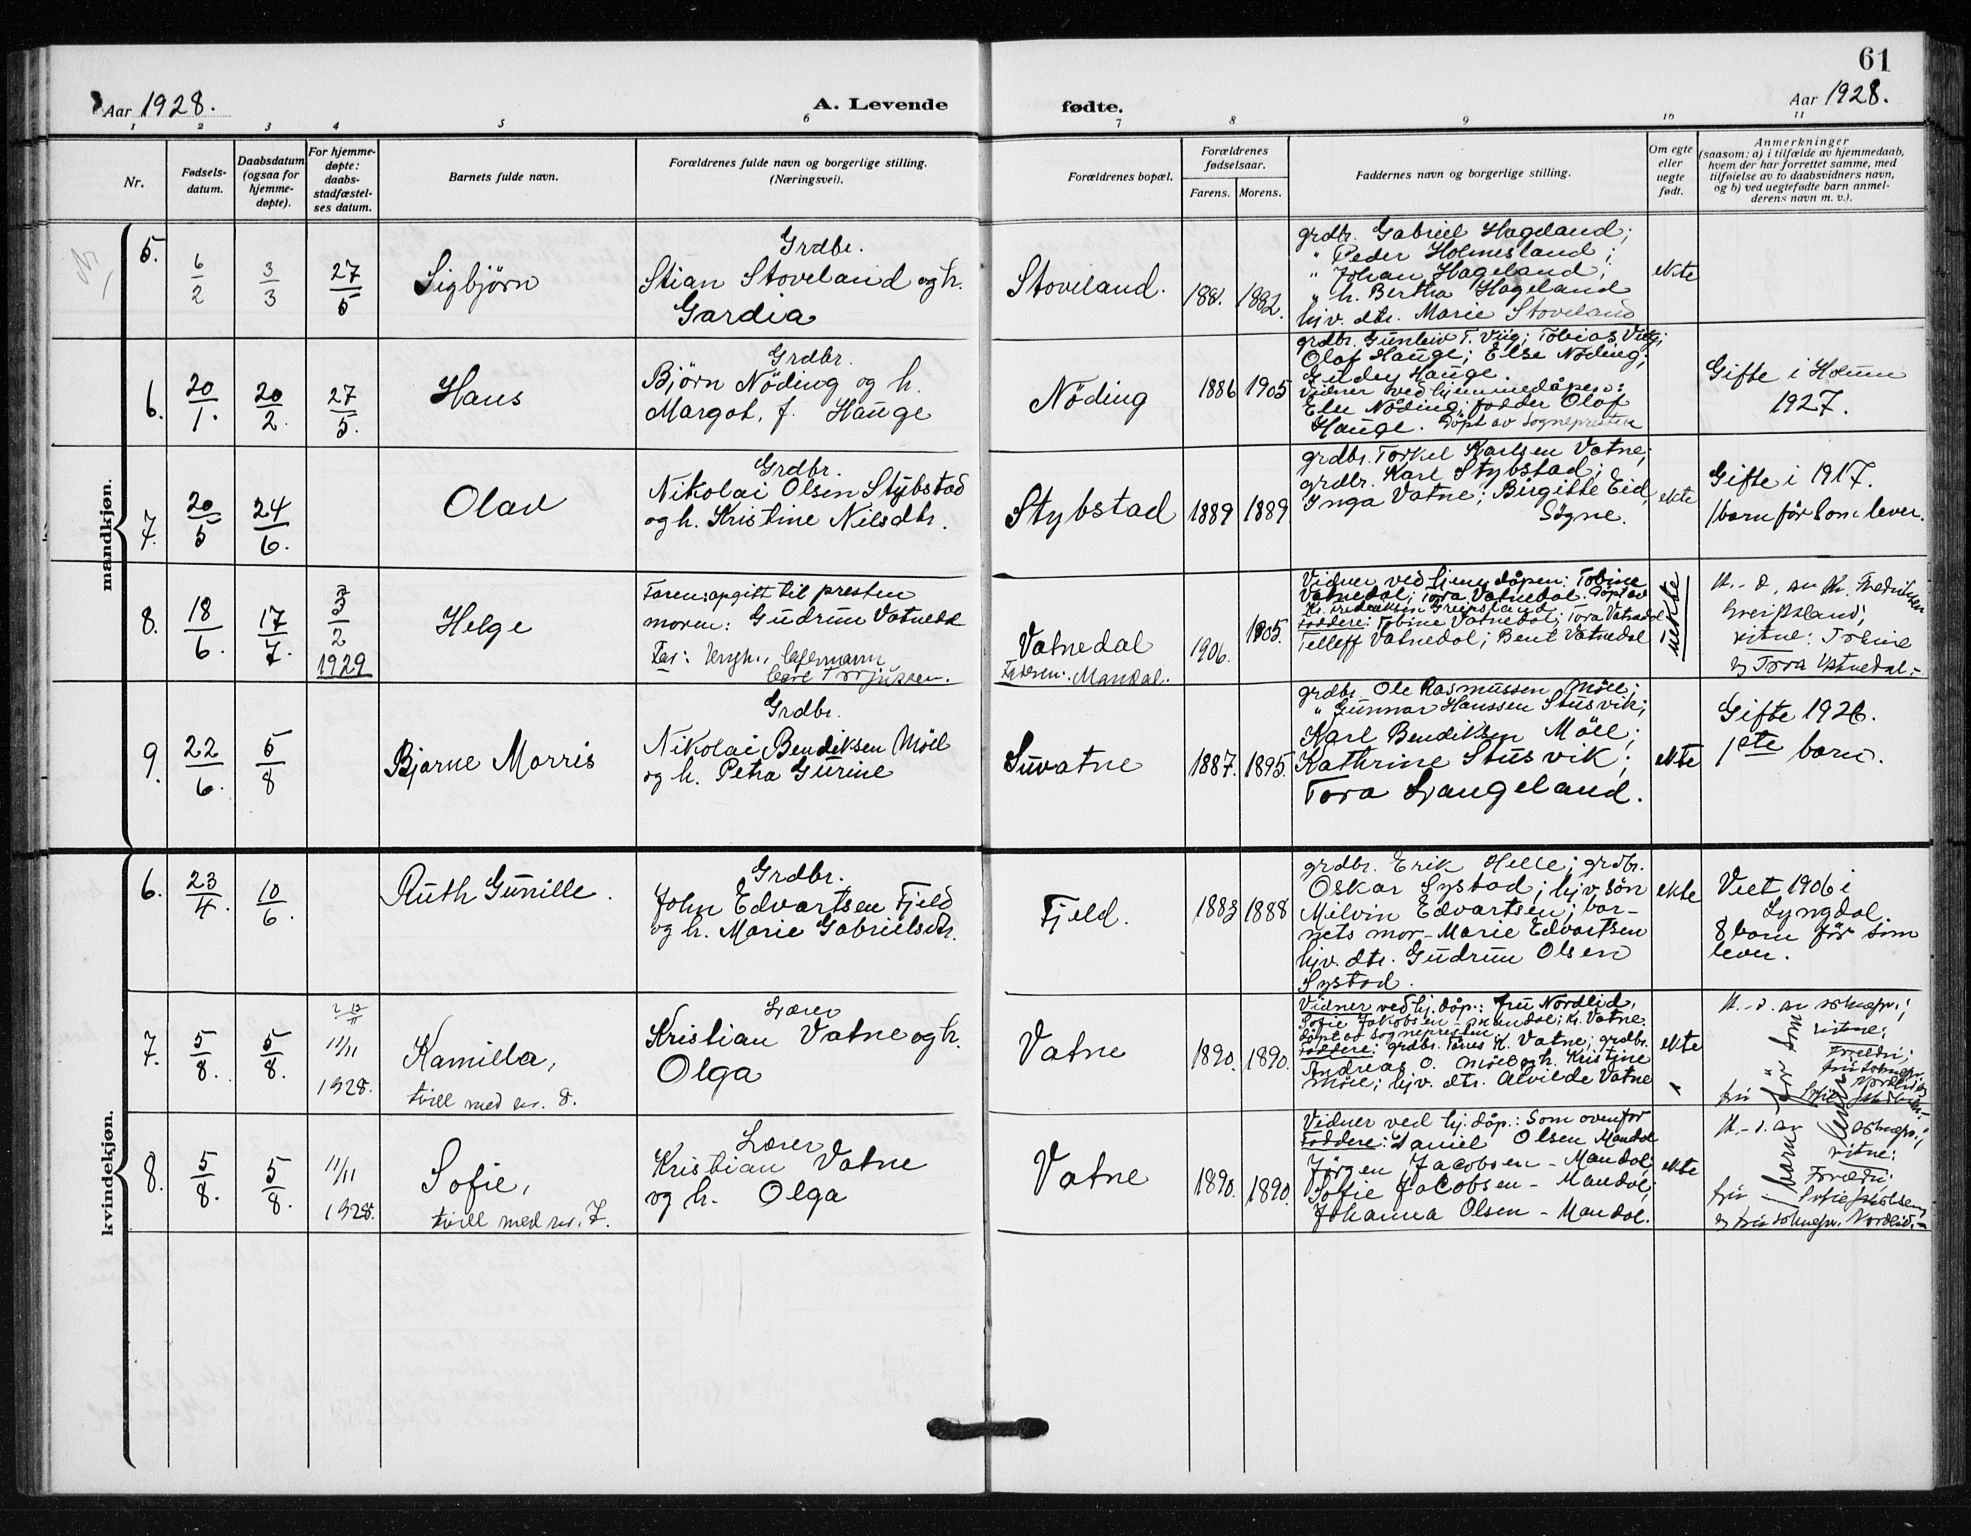 61
Aar 1928.
A. Levende
fødte.
Aar 1928.
1 2 3 4 5 6 7 8 9 10 11
Nr.
Fødsels-
datum.
Daabsdatum
(ogsaa for
hjemme-
døpte).
For hjemme-
døpte:
daabs-
stadfæstel-
ses datum.
Barnets fulde navn.
Forældrenes fulde navn og borgerlige stilling.
(Næringsvei).
Forældrenes bopæl.
Forældrenes
fødselsaar.
Farens. Morens.
Faddernes navn og borgerlige stilling.
Om egte
eller
uegte
født.
Anmerkninger
(saasom: a) i tilfælde av hjemmedaab,
hvem der har forrettet samme, med
tilføielse av to daabsvidners navn,
og b) ved uegtefødte barn anmel-
derens navn m. v.).
mandkjøn.
5.
6/2
3/3
27/5
Sigbjørn
Grdbr.
Stian Stoveland og h.
Gardia
Stoveland.
1881. 1882.
grdbr. Gabriel Hageland;
" Peder Holmesland;
" Johan Hageland;
" h. Bertha Hageland
hjv. dtr. Marie Stoveland
ekte
6.
20/1.
20/2.
27/5.
Hans
Grdbr.
Bjørn Nöding og h.
Margot, f. Hauge
Nöding
1886 1905
grdbr. Gunleiv T. Viig; Tobias Viig;
Olaf Hauge; Else Nöding;
Hauge.
Vidner ved hjemmedåpen:
Else Nöding; fadder Olaf
Hauge. Döpt av Sognepresten
Gifte i Holum
1927.
7.
20/5
24/6.
Olav
Grdbr.
Nikolai Olsen Stybstad
og h. Kristine Nilsdtr.
Stybstad
1889 1889
grdbr. Torkel Karlsen Vatne;
grdbr. Karl Stybstad;
Inga Vatne; Birgitte Eid,
Søgne.
ekte
Gifte i 1917.
1 barn før som lever.
8.
18/6.
17/7.
3/2
1929
Helge
Faren: opgitt til presten
moren: Gudrun Vatnedal
Far:
Carl Torjussen.
Vatnedal
Faderen: Mandal.
1906. 1905.
Vidner ved hjemmedåpen: Tobine
Vatnedal; Tora Vatnedal. Döpt av
Kr. Fredriksen Greipsland
Faddere: Tobine Vatnedal; Tora Vatnedal
Telleff Vatnedal; Bent Vatnedal
uekte
H.-d. av Kr. Fredriksen
Greipsland;
vitne: Tobine
og Tora Vatnedal.-
9.
22/6.
5/8
Bjarne Morris
Grdbr.
Nikolai Bendiksen Möll
og h. Petra Gurine
Suvatne
1887. 1895.
grdbr. Ole Rasmussen Möll;
" Gunnar Hanssen Stusvik;
Karl Bendiksen Möll;
Kathrine Stusvik;
Tora Ljangeland.
ekte
Gifte 1926.
1ste barn.
kvindekjøn.
6.
23/4.
10/6.
Ruth Gunille.
Grdbr.
John Edvartsen Fjeld
og h. Marie Gabrielsdtr.
Fjeld.
1883 1888
grdbr. Erik Helle; grdbr.
Oskar Systad; hjv. søn
Melvin Edvartsen; bar-
nets mor - Marie Edvartsen
hjv. dtr. Gudrun Olsen
Systad.
ekte
Viet 1906 i
Lyngdal.
8 barn før som
lever.
7.
5/8.
5/8.
11/11
1928.
Kamilla,
tvill med nr. 8.
Lærer
Kristian Vatne og h.
Olga
Vatne
1890. 1890.
Vidner ved hj. døp.: fru Nordlid,
Sofie Jakobsen - Mandal; Kr. Vatne.
Döpt av Sognepresten
Faddere: grdbr. Tönes K. Vatne; grdbr.
Andreas O. Möll og h. Kristine
Möll; hjv. dtr. Alvilde Vatne
ekte
H.-d. av sokneprs.;
vitne:
Foreldri;
fru soknepr.
Nordlid og
frk Sofie Jakobsen.-
1 barn før som lever
8.
5/8.
5/8.
11/11
1928.
Sofie,
tvill med nr. 7.
Lærer
Kristian Vatne
og h. Olga
Vatne
1890. 1890.
Vidner ved hj. døp.: Som ovenfor
Faddere: Daniel Olsen Mandal
Jørgen Jacobsen - Mandal;
Sofie Jacobsen - Mandal;
Johanna Olsen - Mandal.
ekte
H.-d. av soknepr.;
vitne:
Foreldri;
frk Sofie Jakobsen
og fru soknepr. Nordlid.-